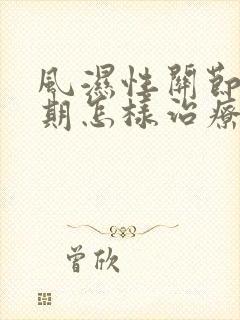 風濕性關節
期怎樣治療
曾欣